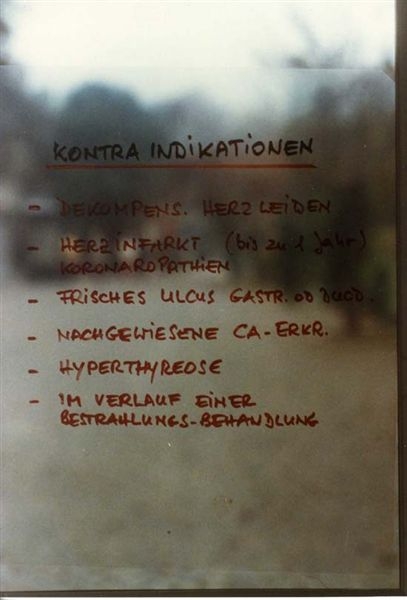 KONTRA INDIKATIONEN
- DEKOMPENS. HERZLEIDEN
- HERZINFARKT (bis zu 1 Jahr)
KORONAROPATHIEN
- FRISCHES ULCUS GASTR. OD DUOD.
- NACHGEWIESENE CA-ERKR.
- HYPERTHYREOSE
- IM VERLAUF EINER
BESTRAHLUNGS-BEHANDLUNG